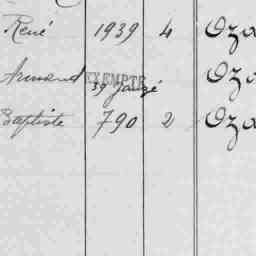 René 1939 4 Oza
Armand EXEMPTÉ Oza
39 Jaugé
Baptiste 790 2 Oza